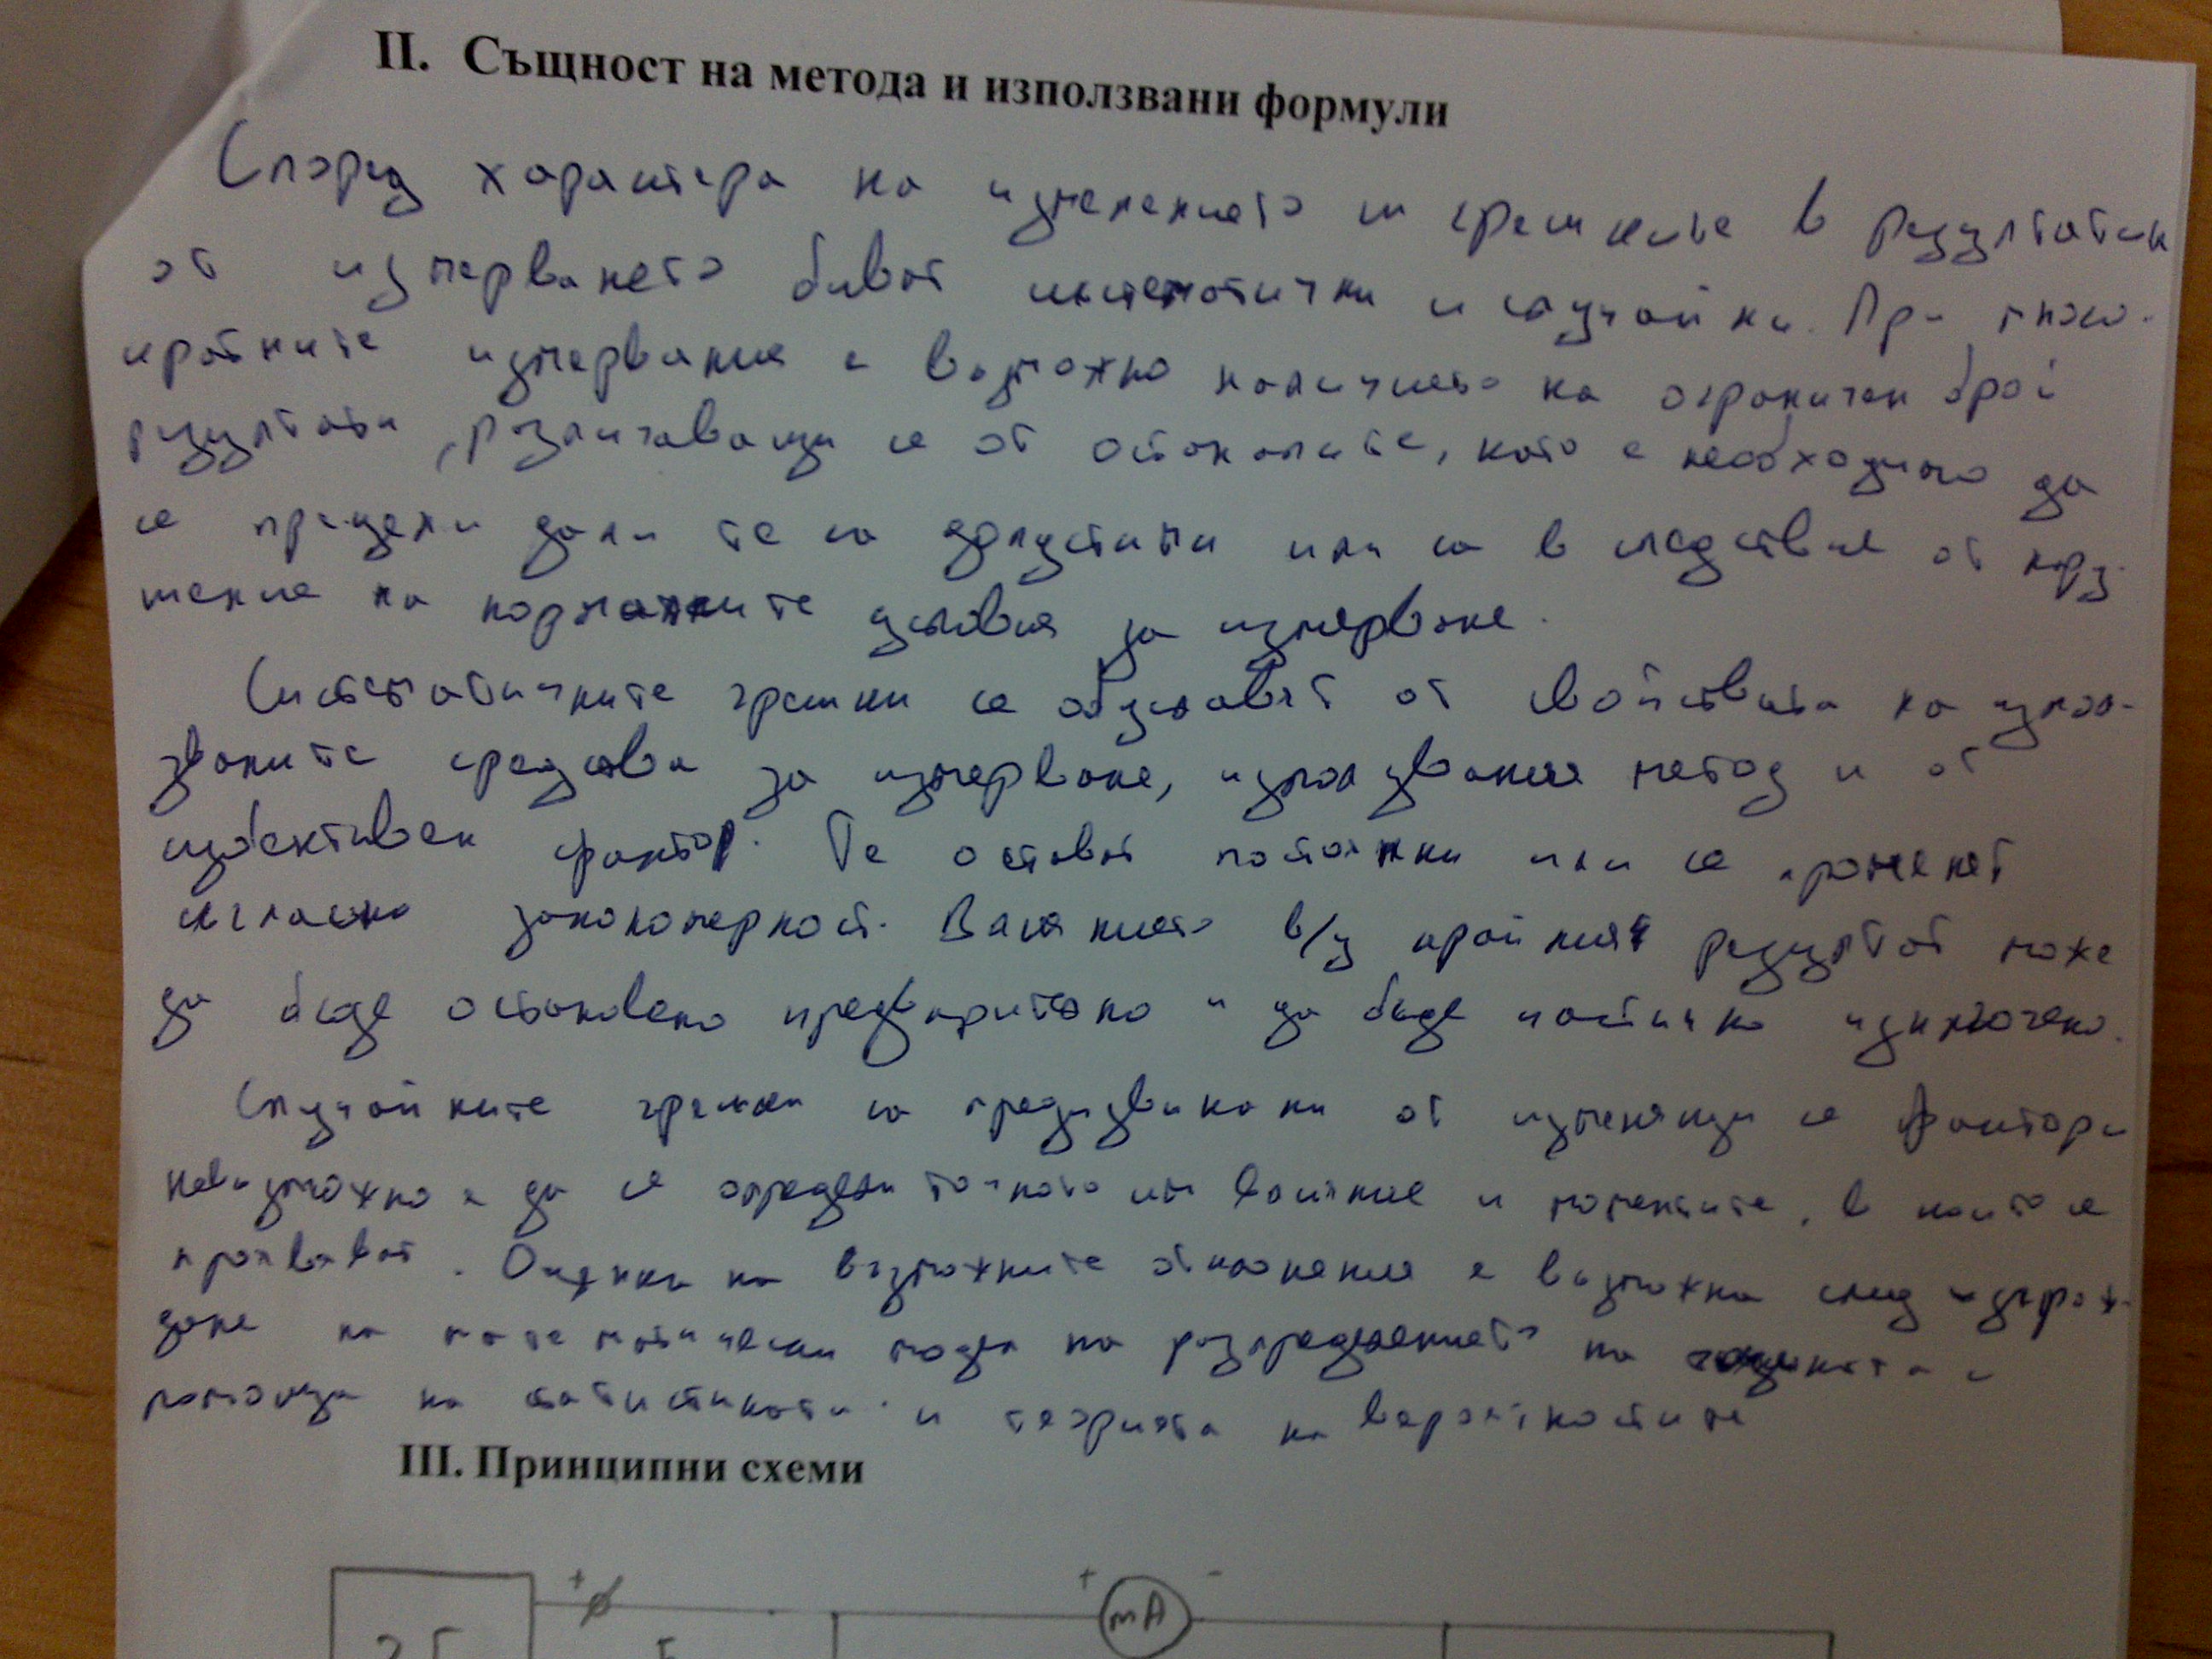 II. Същност на метода и използвани формули
Според характера на изменението си грешките в резултатите
от измерването биват систематични и случайни. При много-
кратните измервания е възможно наличието на ограничен брой
резултати, различаващи се от останалите, като е необходимо да
се прецени дали те са допустими или са в следствие от нару-
шение на нормалните условия за измерване.
Систематичните грешки се обуславят от свойствата на изпол-
званите средства за измерване, използвания метод и от
субективен фактор. Те остават постоянни или се променят
съгласно закономерност. Влиянието в/у крайният резултат може
да бъде остановено предварително и да бъде частично изключено.
Случайните грешки са предизвикани от изменящи се фактори
невъзможно е да се определи точното им влияние и моментите, в които се
проявяват. Оценка на възможните отклонения е възможна след изграж-
дане на математически модел на разпределението на с
помощта на статистиката и теорията на вероятностите
III. Принципни схеми
+ + -
mA